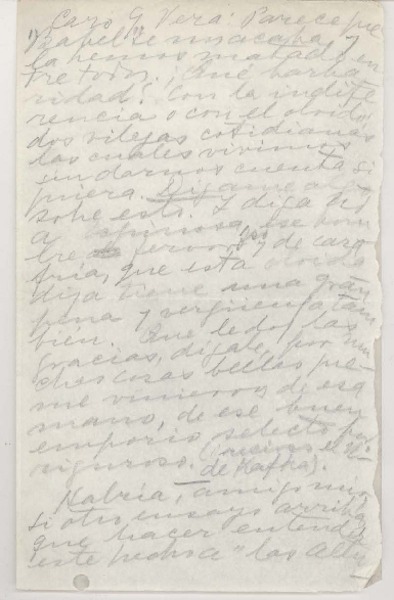 Caro G. Vera: Parece que
"Babel" se nos acaba, y
la hemos matado en
tre todos. ¡Qué barba
ridad! Con la indife
rencia o con el olvido,
dos vilezas cotidianas
las cuales vivimos
sin darnos cuenta si
quiera. Dígame algo
sobre esto. Y diga Ud
a Espinosa, ese hom
bre fervoroso y de cara
fría, que esta
dija tiene una gran
pena y vergüenza tam
bién. Que le doy las
gracias, dígale, por mu
chas cosas bellas que
me vinieron de esa
mano, de ese buen
emporio selecto y
riguroso. (Precioso el Nº
de Kafka).
Habría, amigo mío,
si otro ensayo arriba,
que hacer entender
este pecho a "los allá